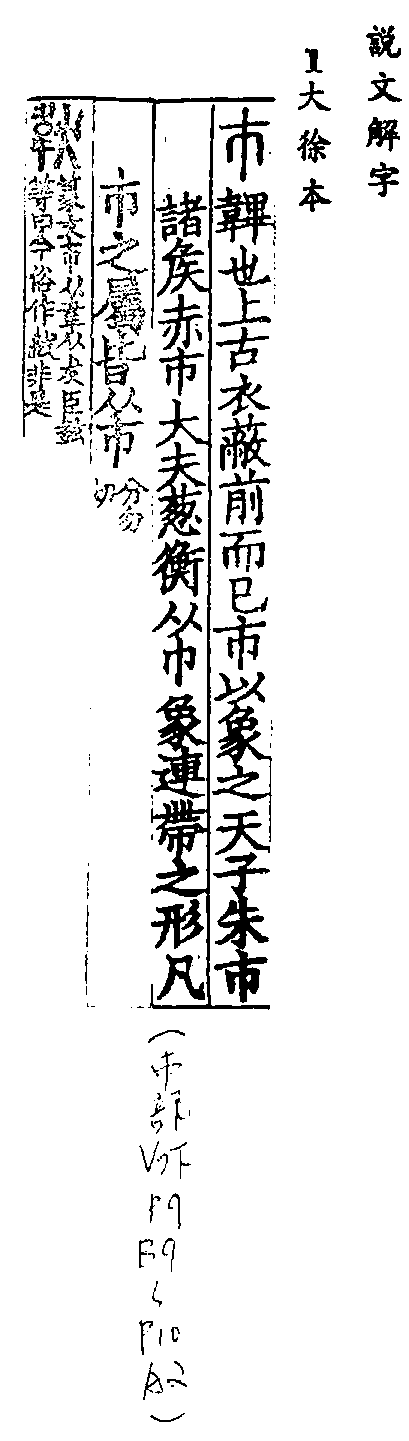 説文解字
1大徐本
巿韠也上古衣蔽前而已巿以象之天子朱巿
諸矦赤巿大夫葱衡从巾象連帶之形凡
巿之屬皆从巿分勿切
篆文巿从韋从犮臣鉉
等曰今俗作紱非是
(巿部
V7下
P9
B9
P10
A2)